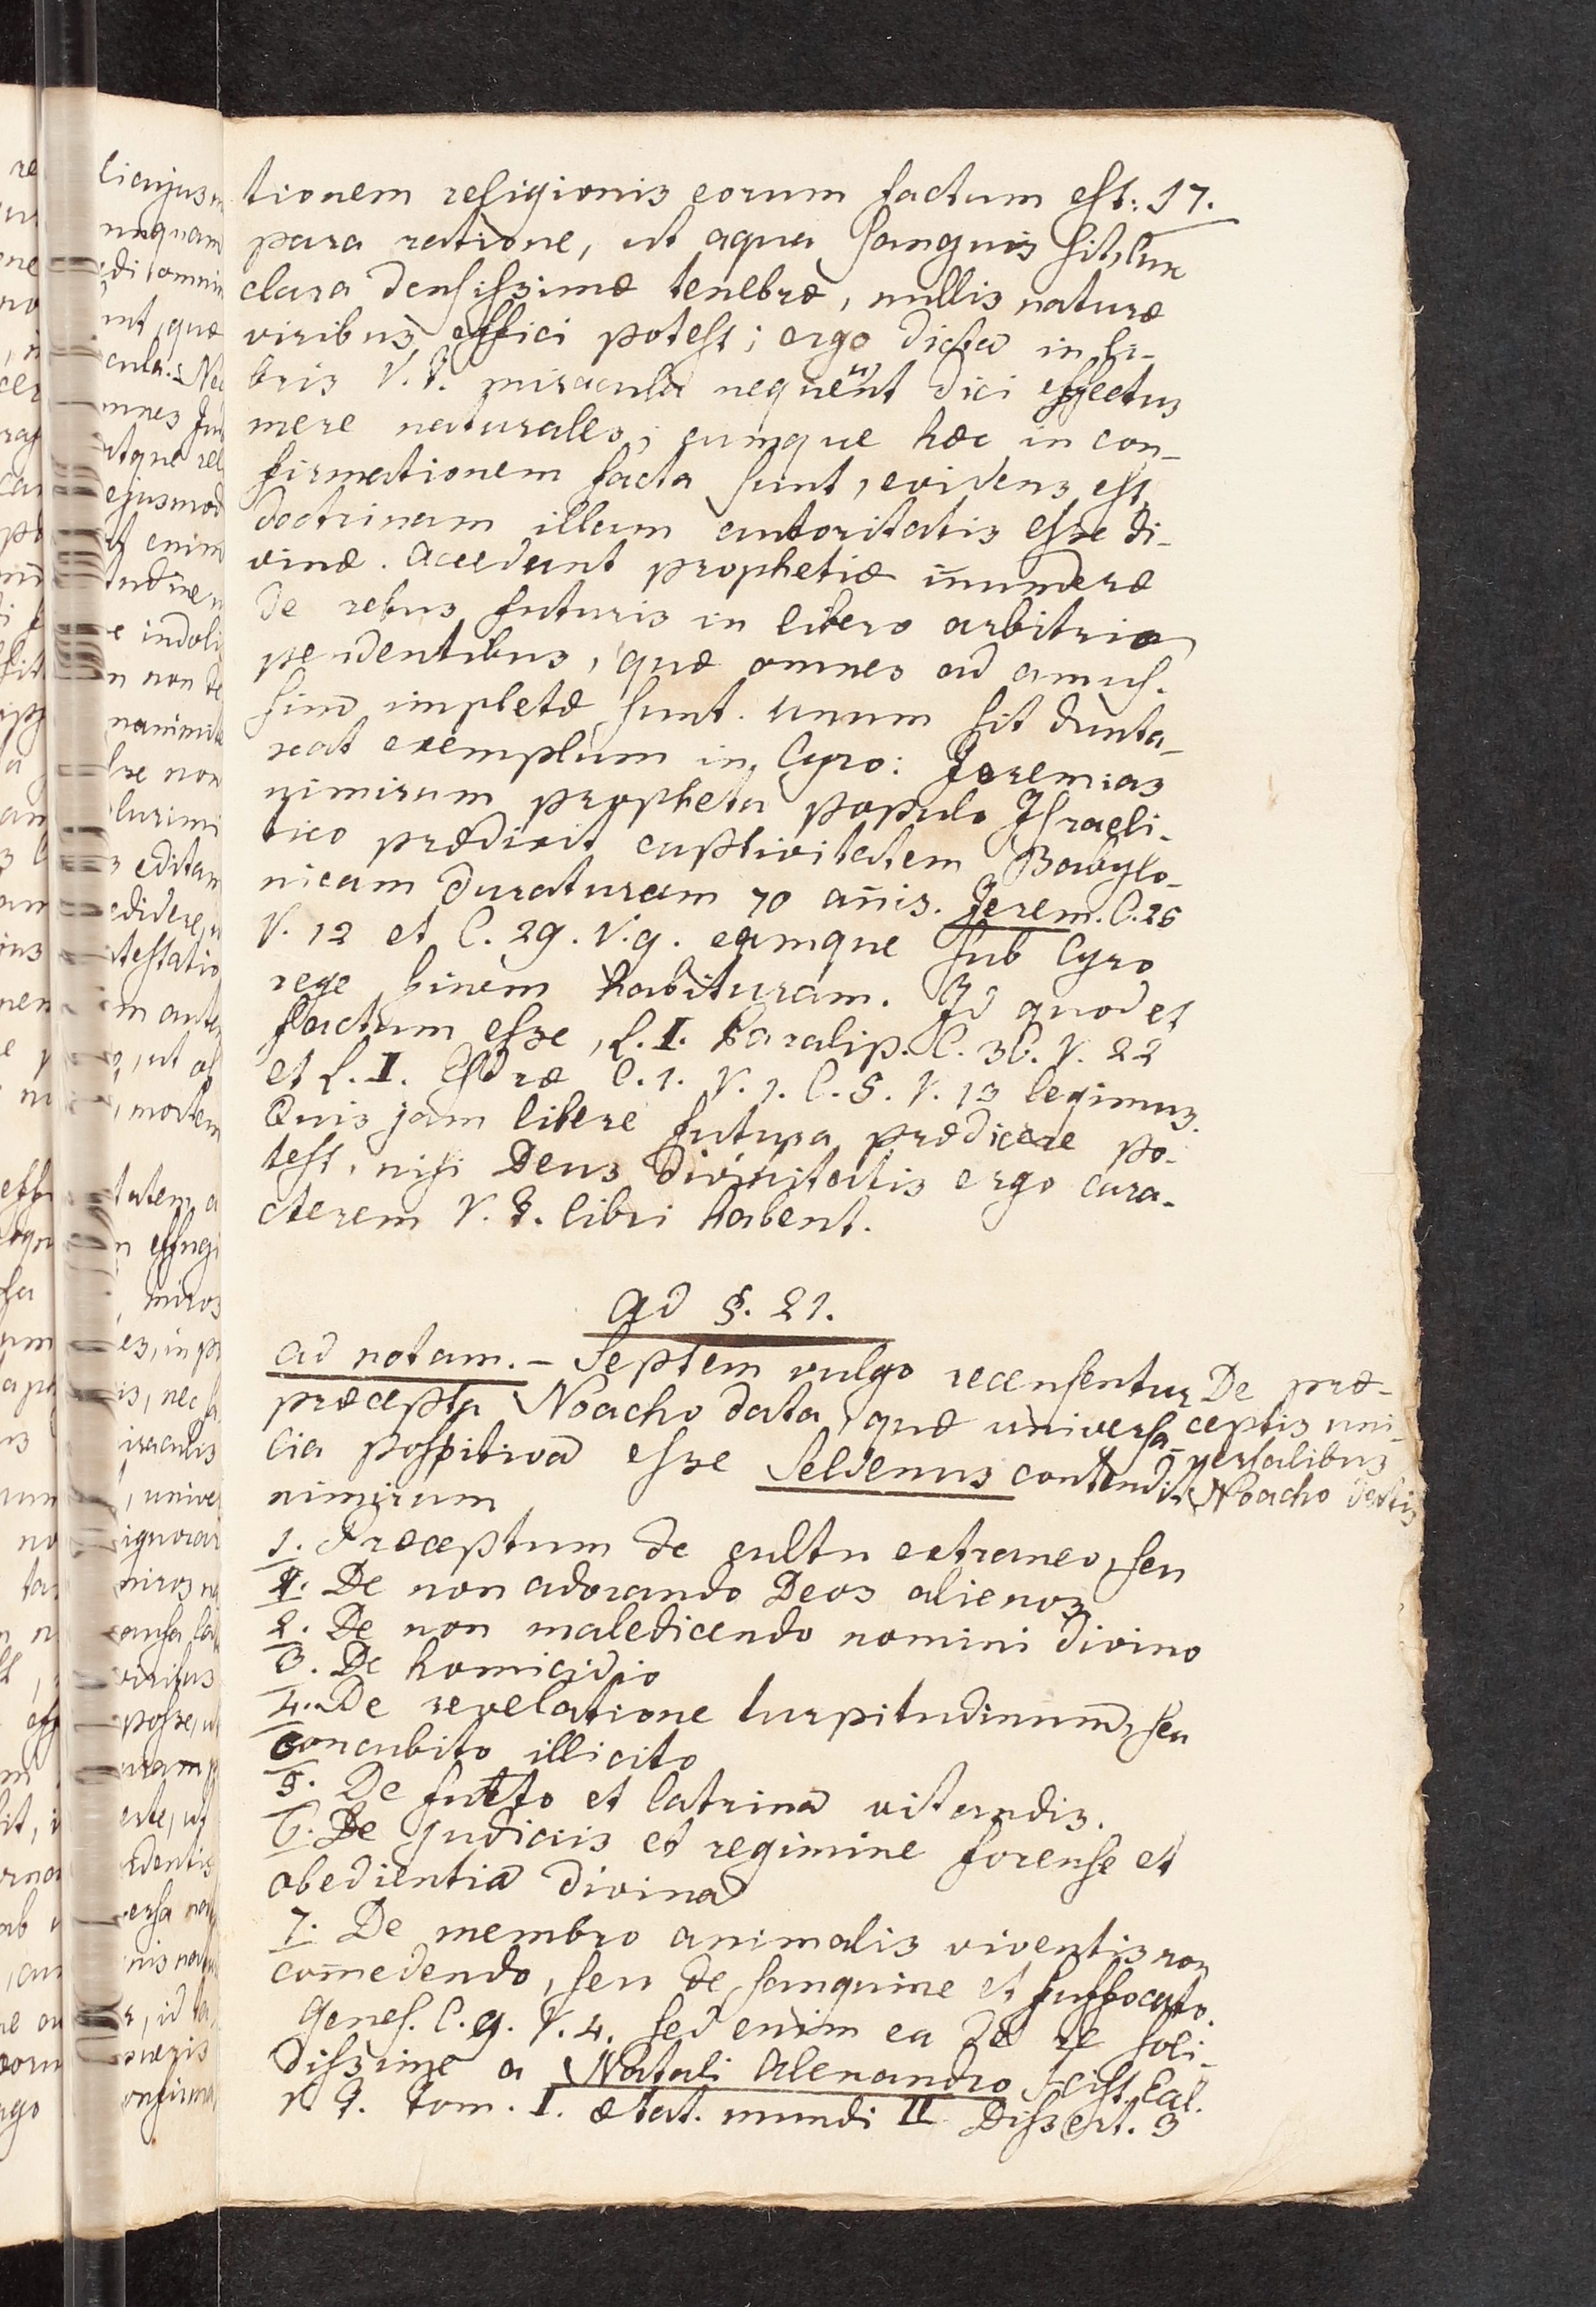 tionem religionis eorum factum est: 17.
para ratione, ut aqua sanguis sit, lux
clara densissimæ tenebræ, nullis naturæ
viribus effici potest; ergo dicta in li-
bris V. T. miracula nequeunt dici effectus
mere naturales; cumque hæc in con-
firmationem facta sunt, evidens est,
doctrinam illam autoritatis esse di-
vinæ. Accedunt prophetiæ iñumeræ
de rebus futuris in libero arbitrio
pendentibus, quæ omnes ad amus-
sim impletæ sunt. Unum sit dunta-
xat exemplum in Cyro: Jeremias
nimirum propheta populo Israeli-
tico prædixit captivitatem Babylo-
nicam duraturam 70 añis. Jerem. C. 25
V. 12 et C. 29. V. 9. eamque sub Cyro
rege finem habituram. Id quod et
factum esse, L. I. Paralip. C. 36. V. 22
et L. I. Esdræ C. 1. V. 1. C. 5. V. 13 legimus.
Quis jam libere futura prædicere po-
test, nisi Deus divinitatis ergo cara-
cterem V. T. libri habent.
ad §. 21.
ad notam. - Septem vulgo recensentur
præcepta Noacho data, quæ universa-
lia positiva esse Seldenus contendit
nimirum
De præ-
ceptis uni-
versalibus
Noacho datis
1. Præceptum de cultu extraneo, seu
1. De non adorando Deos alienos
2. De non maledicendo nomini divino
3. De homicidio
4. De revelatione turpitudinum, seu
concubito illicito
5. De furto et latrina vitandis.
6. De judiciis et regimine forense et
obedientia divina
7. De membro animalis viventis non
com̃edendo, seu de sanguine et suffocato.
Genes. C. 9. V. 4. Sed enim ea de re soli-
dissime a Natali Alexandro Hist. Eccl.
V. T. Tom. I. ætat. mundi II Dissert. 3